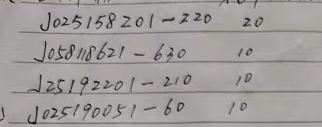 J025158201-220 20
J058118621-630 10
J25192201-210 10
J025190051-60 10